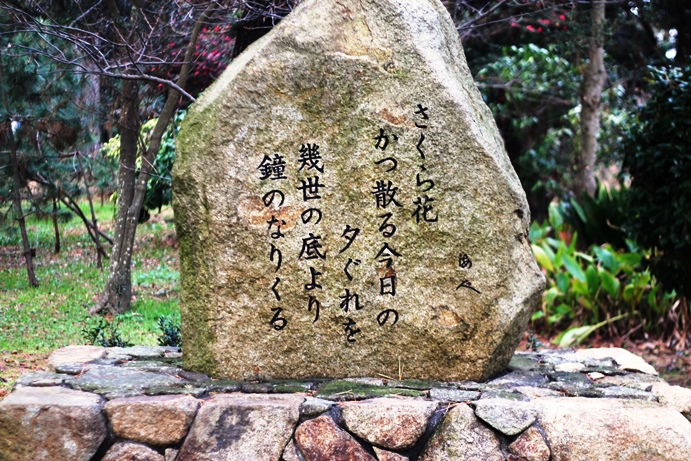 さくら花
かつ散る今日の
夕ぐれを
幾世の底より
鐘のなりくる